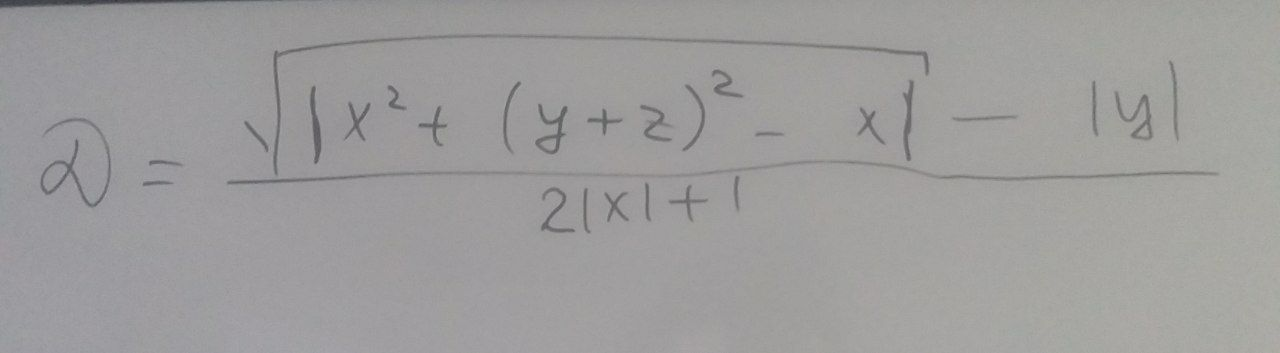 D = √|x² + (y+z)² - x| - |y|
2|x|+1